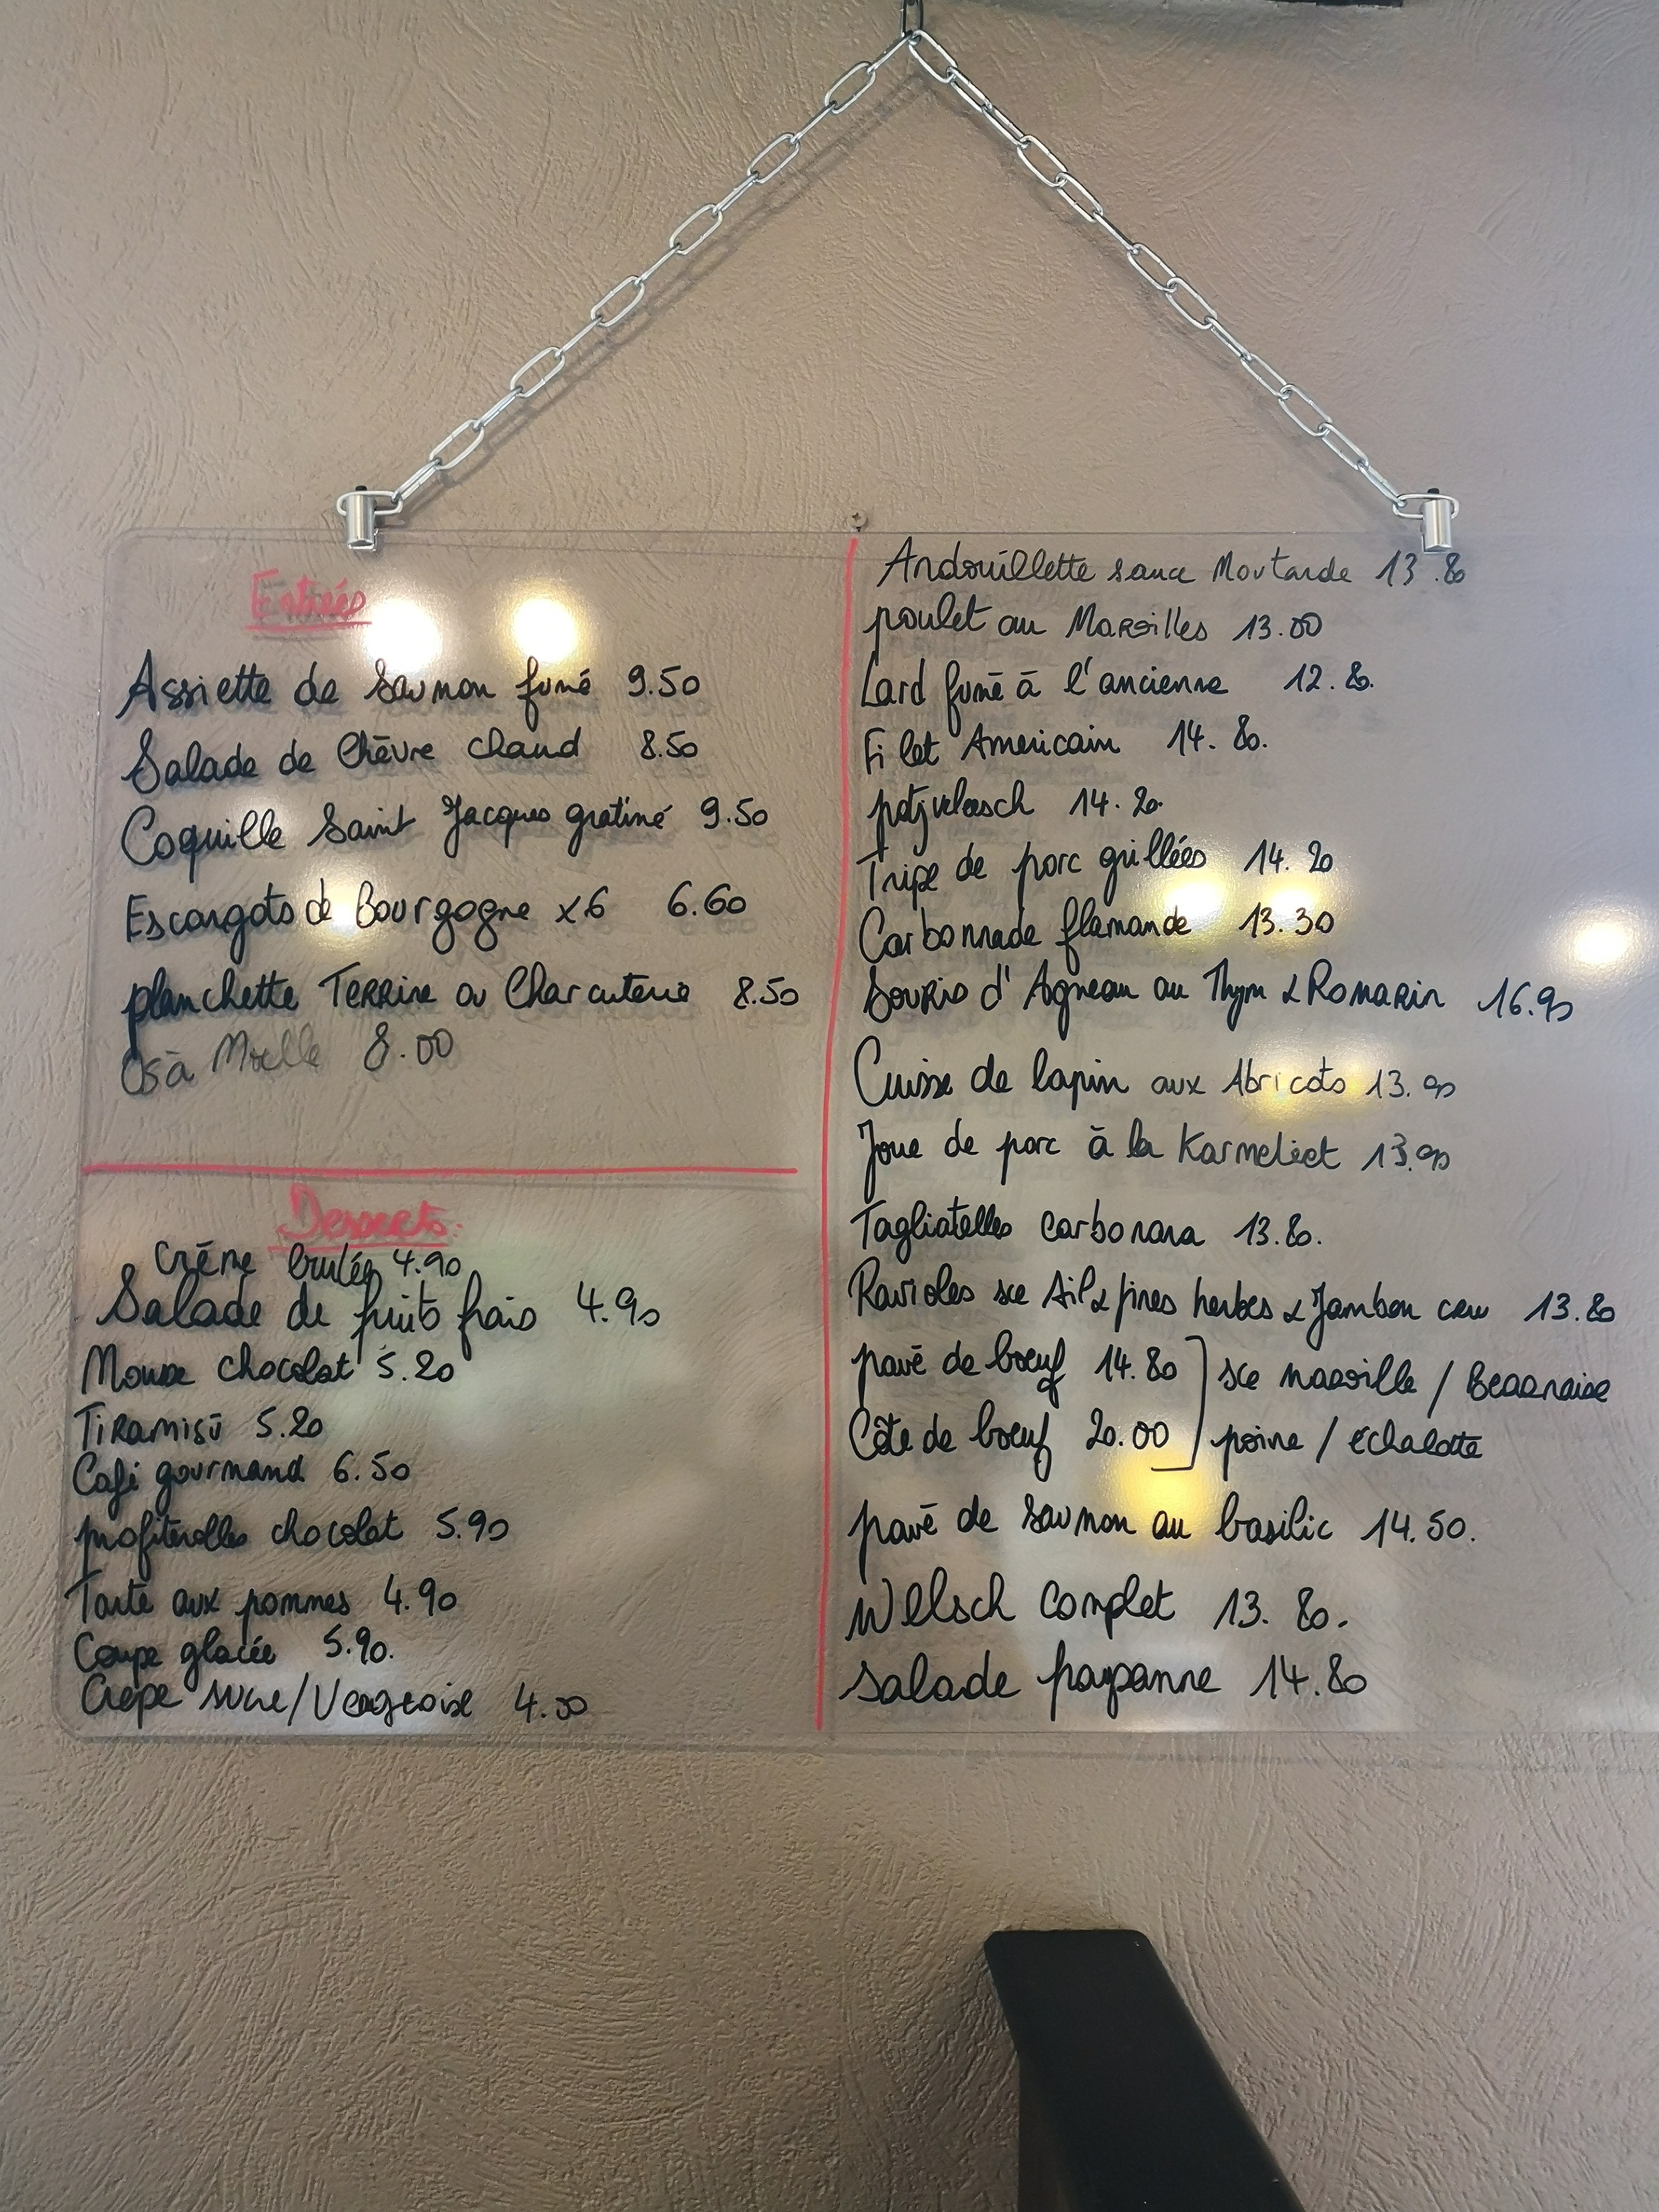 Entrées
Assiette de saumon fumé 9.50
Salade de Chèvre chaud 8.50
Coquille Saint Jacques gratiné 9.50
Escargots de Bourgogne x6 6.60
planchette TERRine ou Charcuterie 8.50
Os à Moelle 8.00
Desserts.
Crème brulée 4.90
Salade de fruits frais 4.90
Mousse chocolat 5.20
TIRAMISU 5.20
Café gourmand 6.50
profiterolles chocolat 5.90
Tarte aux pommes 4.90
Coupe glacée 5.90.
Crêpe sucre/Vergeoise
Andouillette sauce Moutarde 13.80
poulet au Maroilles 13.00
Lard fumé à l'ancienne 12.80.
Filet Americain 14.80.
potjvleesch 14.20.
Tripe de porc grillées 14.20
Carbonnade flamande 13.30
Souris d'Agneau au Thym & Romarin 16.90
Cuisse de lapin aux Abricots 13.90
Joue de porc à la Karmeliet 13.90
Tagliatelles carbonara 13.80.
Ravioles sce Ail & fines herbes & Jambon cru 13.80
pavé de boeuf 14.80 ] sce maroille / Bearnaise
Côte de boeuf 20.00 ] poivre / échalotte
pavé de saumon au basilic 14.50.
Welsch complet 13.80.
Salade paysanne 14.80